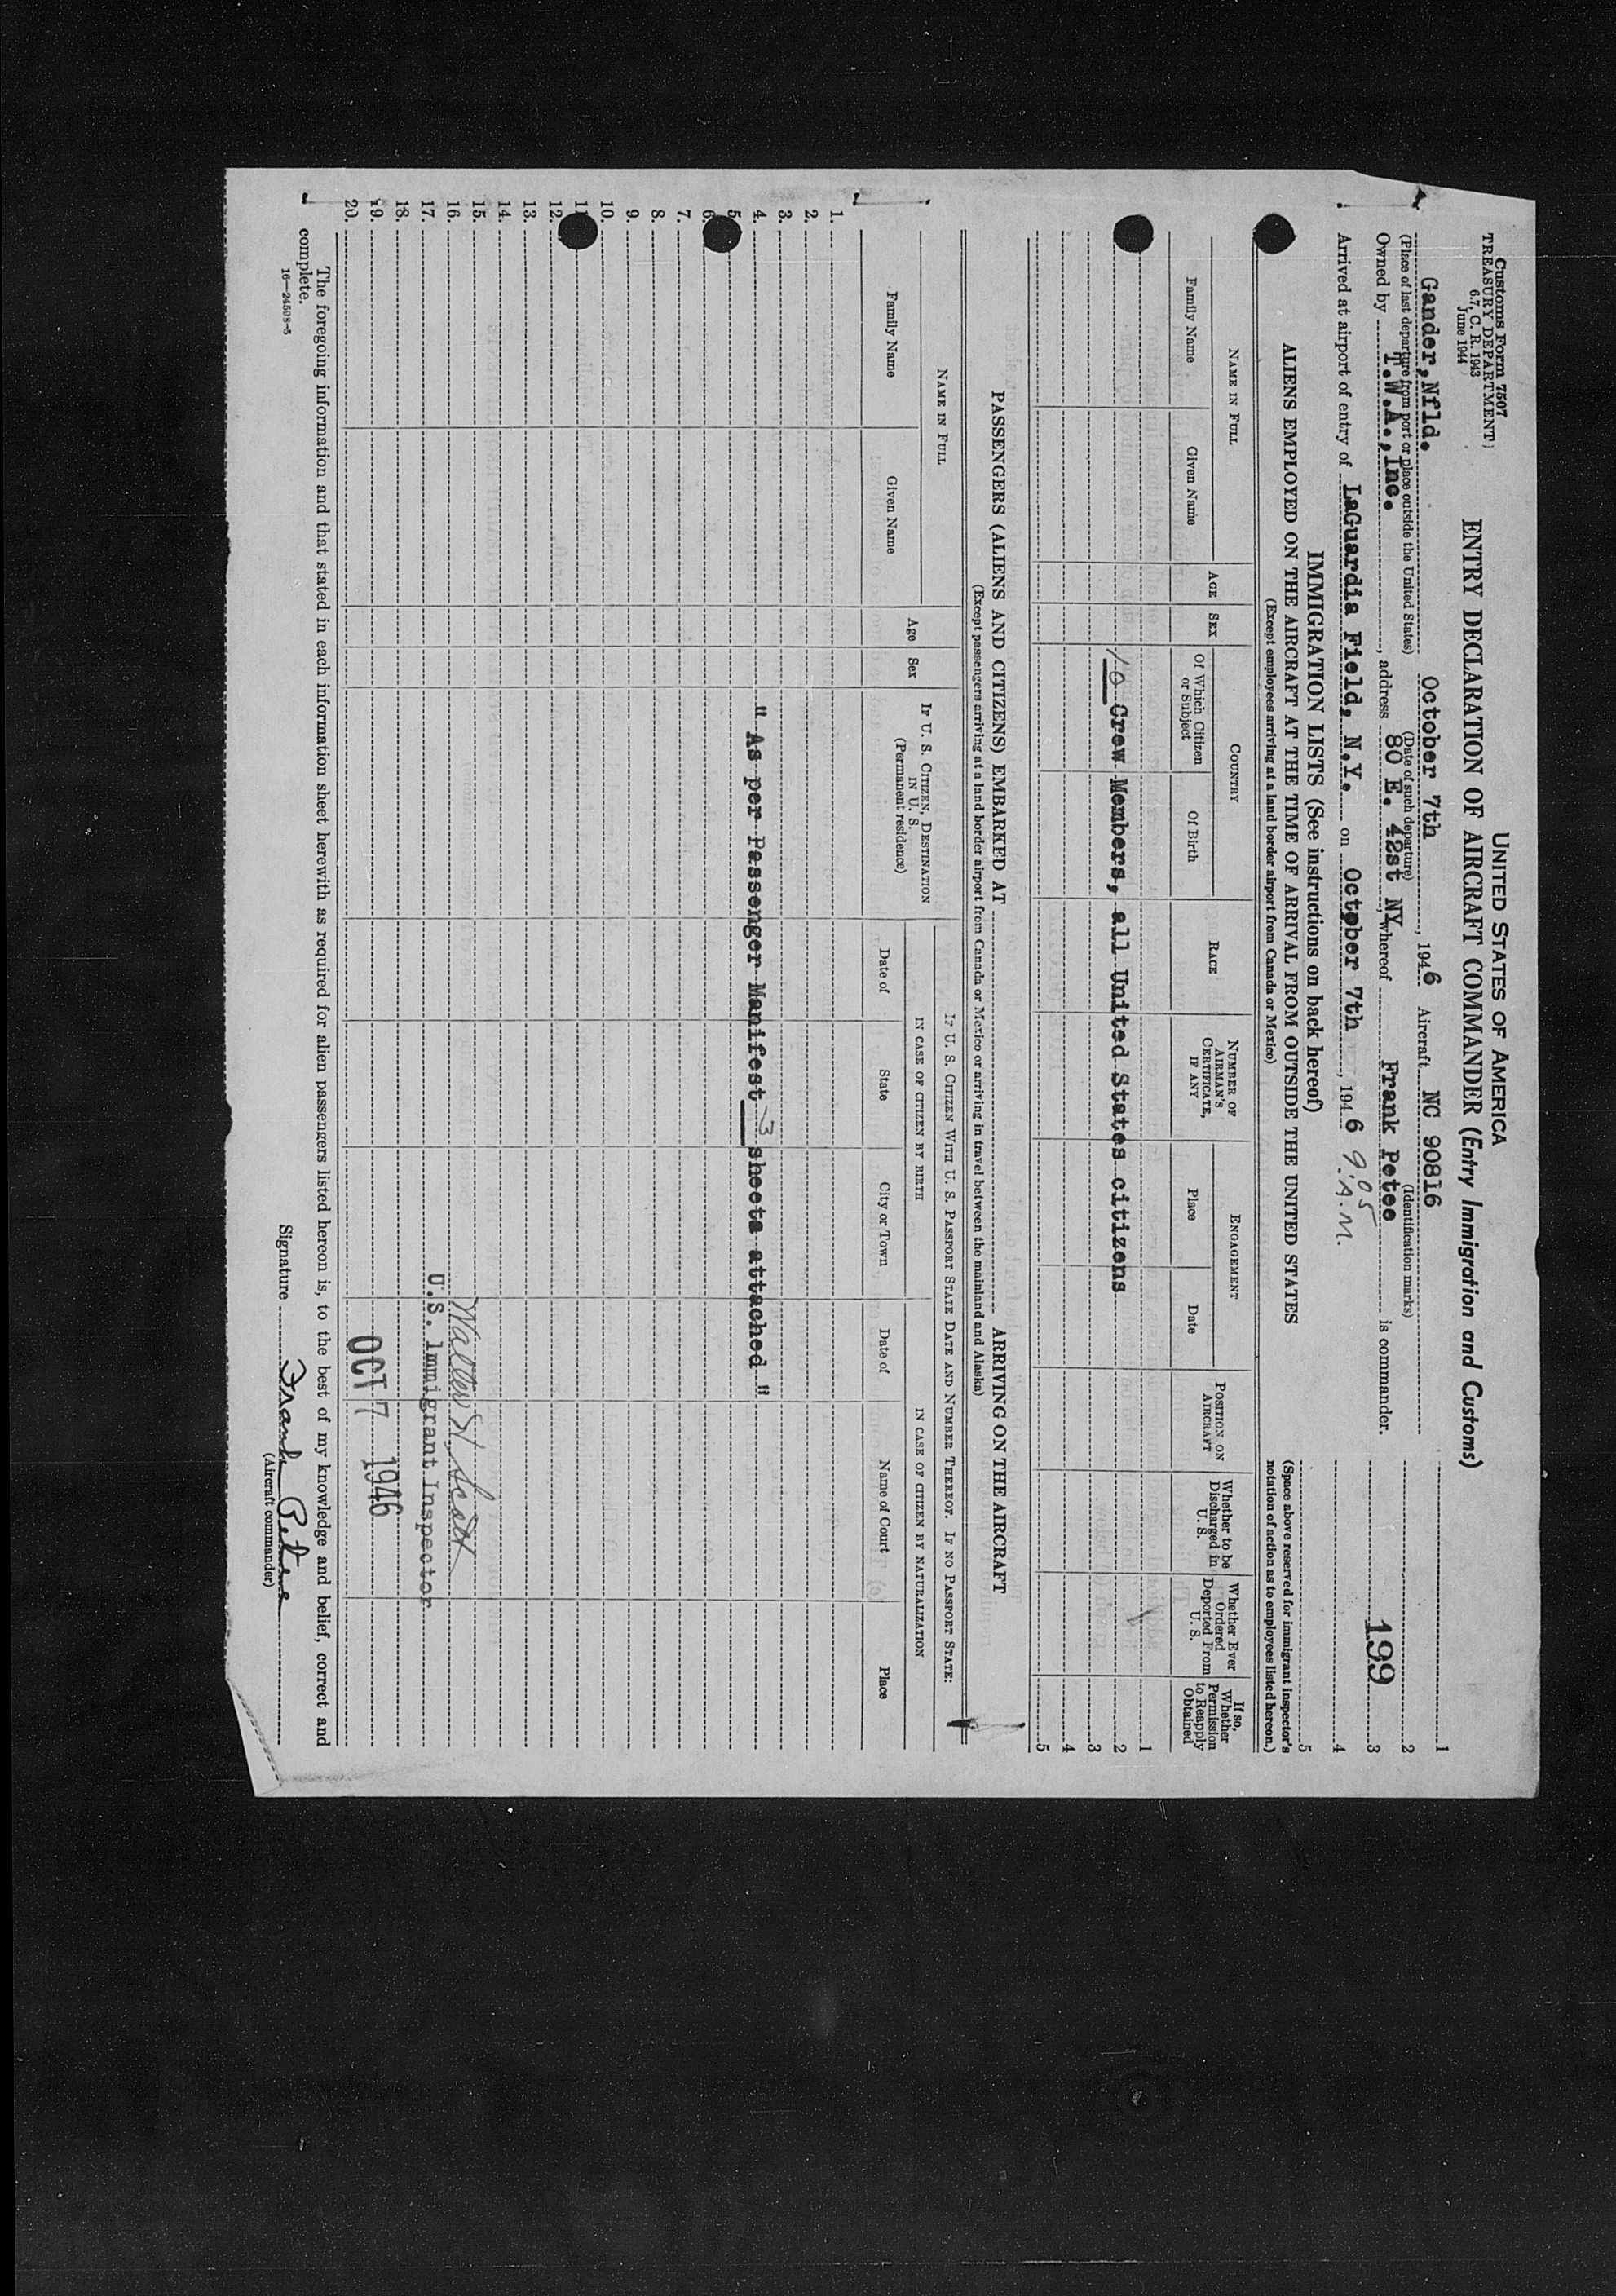 Customs Form 7507
TREASURY DEPARTMENT
6.7, C. R. 1943
June 1944
UNITED STATES OF AMERICA
ENTRY DECLARATION OF AIRCRAFT COMMANDER (Entry Immigration and Customs)
Gander, Nfld. October 7th, 1946 Aircraft NC 90816
(Place of last departure from port or place outside the United States) (Date of such departure) (Identification marks)
Owned by T.W.A., Inc., address 80 E. 42st NY, whereof Frank Petee is commander.
Arrived at airport of entry of LaGuardia Field, N.Y. on October 7th, 1946 9:05 A.M.
1
2
199
3
4
5
IMMIGRATION LISTS (See instructions on back hereof)
ALIENS EMPLOYED ON THE AIRCRAFT AT THE TIME OF ARRIVAL FROM OUTSIDE THE UNITED STATES
(Except employees arriving at a land border airport from Canada or Mexico)
(Space above reserved for immigrant inspector's notation of action as to employees listed hereon.)
NAME IN FULL
Family Name
Given Name
AGE
SEX
COUNTRY
Of Which Citizen or Subject
Of Birth
RACE
NUMBER OF AIRMAN'S CERTIFICATE, IF ANY
ENGAGEMENT
Place
Date
POSITION ON AIRCRAFT
Whether to be Discharged in U. S.
Whether Ever Ordered Deported From U. S.
If so, Whether Permission to Reapply Obtained
1
10 Crew Members, all United States citizens 2
3
4
5
PASSENGERS (ALIENS AND CITIZENS) EMBARKED AT ARRIVING ON THE AIRCRAFT
(Except passengers arriving at a land border airport from Canada or Mexico or arriving in travel between the mainland and Alaska)
NAME IN FULL
Family Name
Given Name
Age
Sex
IF U. S. CITIZEN, DESTINATION IN U. S.
(Permanent residence)
IF U. S. CITIZEN WITH U. S. PASSPORT STATE DATE AND NUMBER THEREOF. IF NO PASSPORT STATE:
IN CASE OF CITIZEN BY BIRTH
IN CASE OF CITIZEN BY NATURALIZATION
Date of
State
City or Town
Date of
Name of Court
Place
1.
2.
3.
4. " As per Passenger Manifest 3 sheets attached "
5
6
7.
8.
9.
10.
11
12.
13.
14.
15.
16. Walter H. Scott
17. U.S. Immigrant Inspector
18.
19. OCT 7 1946
20.
The foregoing information and that stated in each information sheet herewith as required for alien passengers listed hereon is, to the best of my knowledge and belief, correct and
complete.
16—24508-5
Signature Frank Petee
(Aircraft commander)